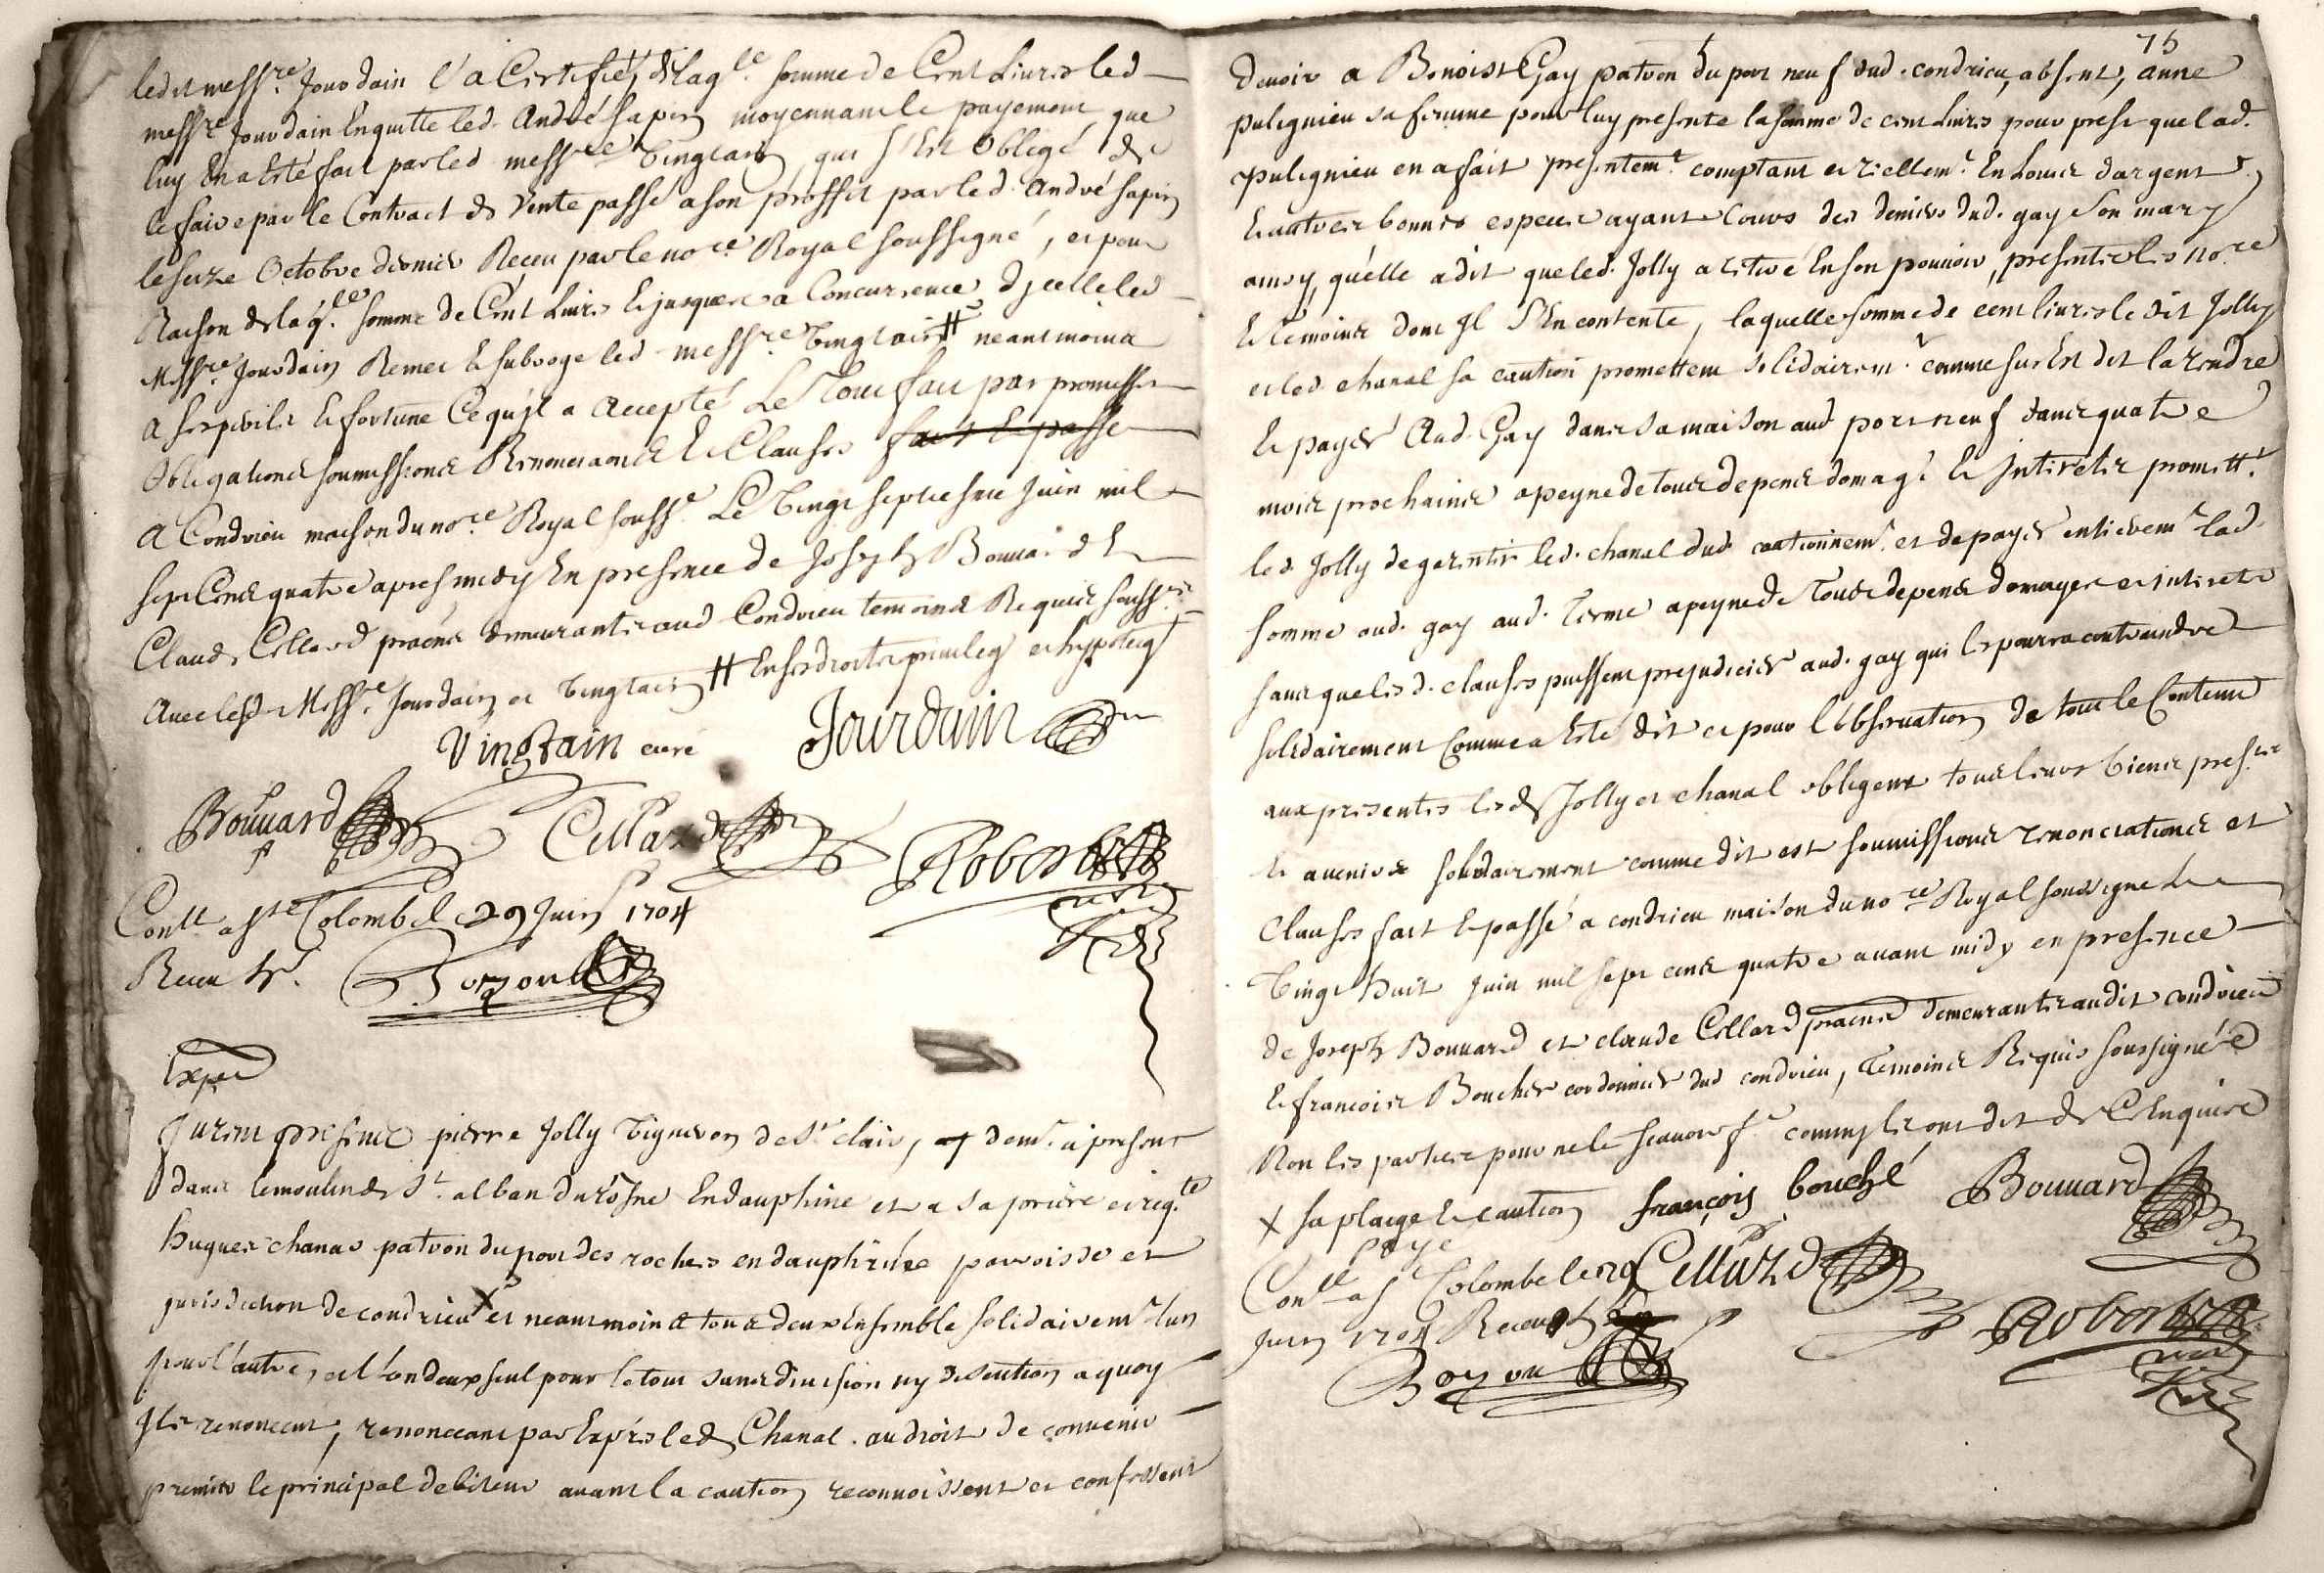 ledit mess.re Jourdain l'a Certifié, de laq.le somme de Cent Livres led.
mess.re Jourdain Enquitte led. André Sapin moyennant le payement que
luy En a Esté fait par led mess.re Vingtain qui s'Est Obligé de
le faire par le Contract de Vente passé a son proffit par led. André Sapin
le seize Octobre dernier Receu par le no.re Royal soussigné, et pour
Raison de la q.lle somme de Cent Livres et jusques a Concurrence d'jcelle led
Mess.re Jourdain Remet et subroge led mess.re Vingtain # neantmoins
a ses perils et fortune Ce qu'jl a accepté Le Tout fait par promesses
Obligations soumissions Renonciations et Clauses fait et passé
A Condrieu maison du no.re Royal souss.é Le Vingt septiesme Juin mil
sept Cens quatre apres midy En presence de Joseph Bouvard Et
Claude Cellard pratiens demeurants aud Condrieu temoins Requis souss.nes
Avec lesd. Mess.re Jourdain et Vingtain # En ses droits privileg et hypoteq
Vingtain curé Jourdain
Bouuard Cellard Robert
Con.lle a s.te Colombe le 29 Juin 1704
Receu
Exped
Furent presents pierre Jolly Vigneron de S.t clair, dem.t a present
dans le moulin de S.t alban du rosne En dauphiné et a sa priere et req.te
hugues chanas patron du port des roches en dauphiné parroisse et
jurisdiction de condrieu X et neantmoins tous deux Ensemble solidairem.t l'un
pour l'autre, et l'un deux seul pour le tout sans division ny discution a quoy
Jls renoncent, renonceant par Exprès led. Chanal au droit de convenir
premier le principal debiteur avant la caution reconnoissent et confessent
75
devoir a Benoist Gay patron du port neuf dud. condrieu, absent, anne
pulegnieu sa femme pour luy presente la somme de cent Livres pour prest que lad.
pulegnieu en a fait presentem.t comptant et réellem.t En Louis d'argent
Et autres bonnes especes ayant Cours des deniers dud. gay son mary
ainsy qu'elle a dit que led. Jolly a retiré En son pouvoir, presents les no.re
Et temoins dont Jl s'En contente, laquelle somme de cent livres le dit Jolly
et led. chanal sa caution promettent solidairem.t comme sus Est dit la rendre
Et payer Aud. Gay dans sa maison aud port neuf dans quatre
mois prochains a peyne de tous depens domag.s Et Jnterets promett.t
led. Jolly de garentir led. chanal dud. cautionnem.t et de payer entierem.t lad.
somme aud. gay aud. terme a peyne de Tous depens domages et interets
sans que lesd. clauses puissent prejudicier aud. gay qui les pourra contraindre
solidairement Comme a Esté dit et pour l'observation de tout le Contenu
aux presentes lesd. Jolly et chanal obligent tous leurs biens presens
et avenir solidairement comme dit est soumissions renonciations et
Clauses fait et passé a condrieu maison du no.re Royal soussigné Le
Vingt huit Juin mil sept cens quatre avant midy en presence
de Joseph Bouuard et claude Cellard pratiens demeurants audit condrieu
Et francois Boucher cordonnier dud condrieu, Temoins Requis soussignés
Non les parties pour ne le scavoir f.re comme Jls ont dit de Ce Enquis
X sa plaige et caution françois bouché Bouuard
Con.lle a s.te Colombe le 29 Cellard
Juin 1704 Receu Robert